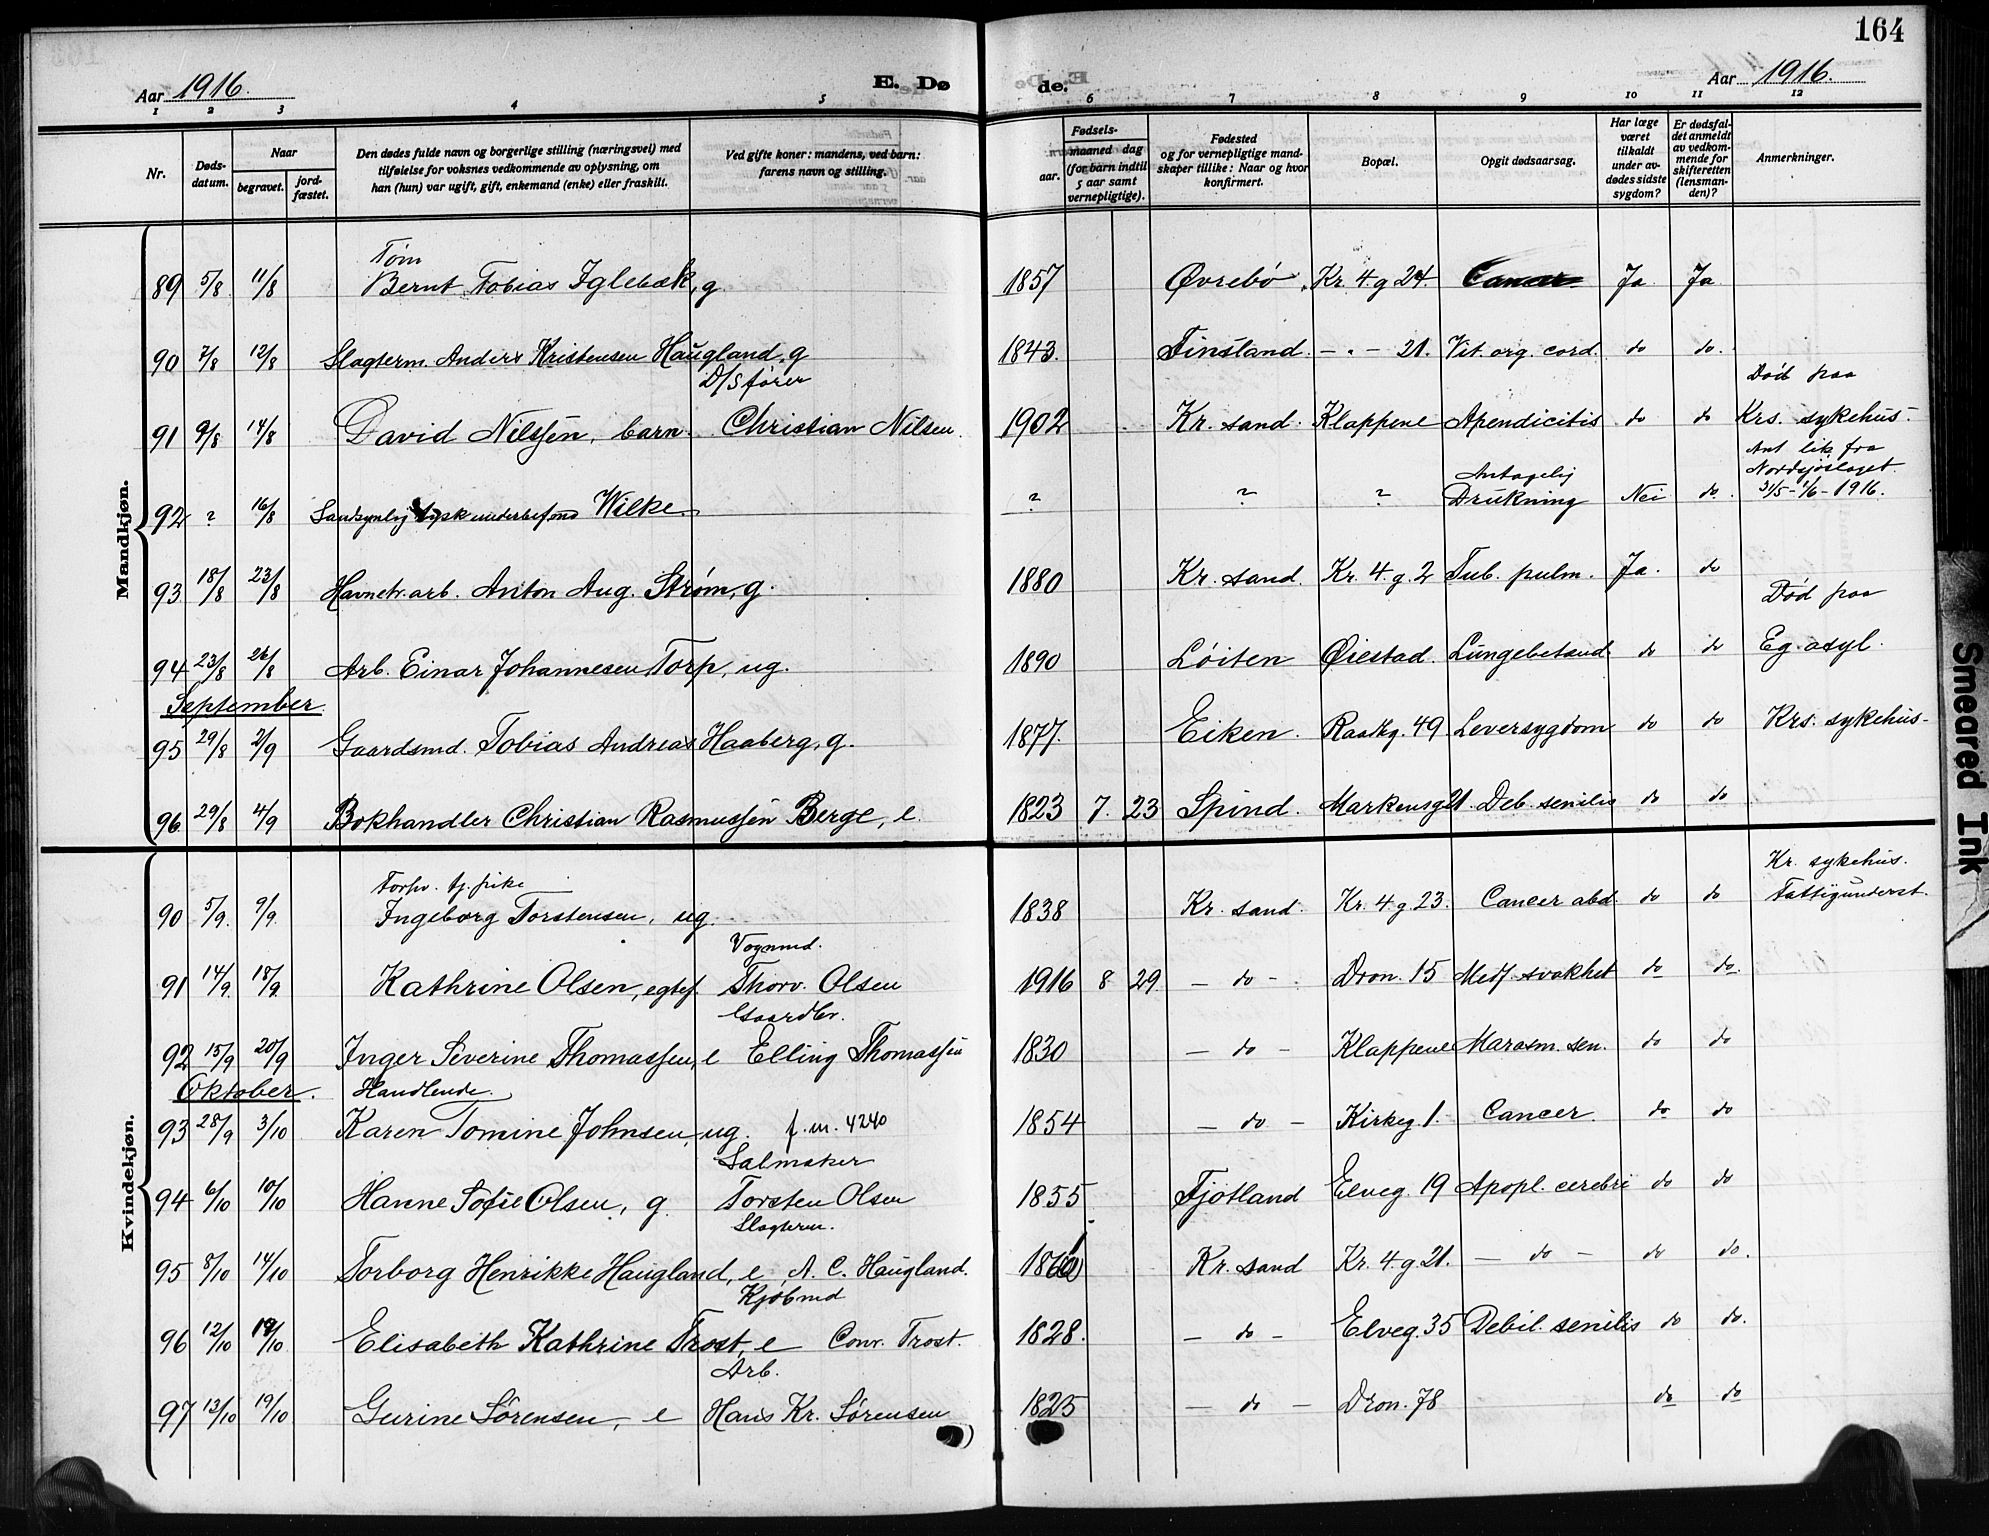 164
Aar 1916.
E. Dø
de.
Aar 1916.
1 2 3 4 5 6 7 8 9 10 11 12
Nr.
Døds-
datum.
Naar
begravet.
jord-
fæstet.
Den dødes fulde navn og borgerlige stilling (næringsvei) med
tilføielse for voksnes vedkommende av oplysning, om
han (hun) var ugift, gift, enkemand (enke) eller fraskilt.
Ved gifte koner: mandens, ved barn:
farens navn og stilling.
Fødsels-
aar.
maaned dag
(for barn indtil
5 aar samt
vernepligtige).
Fødested
og for vernepligtige mand-
skaper tillike: Naar og hvor
konfirmert.
Bopæl.
Opgit dødsaarsag.
Har læge
været
tilkaldt
under av-
dødes sidste
sygdom?
Er dødsfal-
det anmeldt
av vedkom-
mende for
skifteretten
(lensman-
den)?
Anmerkninger.
Mandkjøn.
Tøm
89 5/8 11/8 Bernt Tobias Iglebæk, g 1857 Øvrebø Kr. 4. g 24. Cancer Ja Ja
90 7/8 12/8 Slagterm. Anders Kristensen Haugland, g 1843. Finsland. - " - 21. Vit. org. cord. do do.
D/S fører
Død paa
91 9/8 14/8 David Nilssen, barn. Christian Nilsen. 1902 Kr. sand. Klappene Apendicitis do do Krs. sykehus.
Ant lik fra
Nordsjøslaget
Antagelig
92 ? 16/8 Sandsynlig tysk Wilke ? ? ? Drukning Nei do. 31/5-1/6-1916.
93 18/8 23/8 Havnetr. arb. Anton Aug. Strøm, g. 1880 Kr. sand. Kr. 4. g. 2 Tub. pulm. Ja. do
Død paa
94 23/8 26/8 Arb. Einar Johannesen Torp, ug. 1890 Løiten Øiestad. Lungebetænd do do Eg asyl.
September.
95 29/8 2/9 Gaardsmd. Tobias Andreas Haaberg, g. 1877. Eiken. Raadhg. 49 Leversygdom do do Krs. sykehus-
96 29/8 4/9 Bokhandler Christian Rasmussen Berge, e. 1823 7. 23 Spind. Markensg 21. Deb. senilis do do
Kvindekjøn.
Forhv. tj. pike
Kr. sykehus.
90 5/9. 9/9. Ingeborg Torstensen, ug. 1838 Kr. sand. Kr. 4. g. 23. Cancer abd. do do Fattigunderst.
Vognmd.
91 14/9. 18/9. Kathrine Olsen, egtef. Thorv. Olsen 1916 8 29 - do - Dron. 15 Medf. svakhet do do.
Gaardbr.
92 15/9 20/9 Inger Severine Thomassen, e Elling Thomassen 1830 - do - Klappene Marasm. sen. do do
Oktober. Handlende.
93 28/9 3/10 Karen Tomine Johnsen, ug. f. m. 4240 1854 - do - Kirkeg 1. Cancer. do do
Salmaker
94 6/10 10/10 Hanne Sofie Olsen, g. Torsten Olsen 1855 Fjotland Elveg. 19 Apopl. cerebri do do
Slagterm.
95 8/10 14/10 Torborg Henrikke Haugland, e A. C. Haugland. Kr. sand Kr. 4. g 21. - do - do do.
Kjøbmd
96 12/10 19/10 Elisabeth Kathrine Trost, e Conr. Trost. 1828. - do - Elveg. 35 Debil. senilis do do.
Arb.
97 13/10 19/10 Gurine Sørensen, e Hans Kr. Sørensen 1825 - do - Dron. 78 do do
Smeared Ink